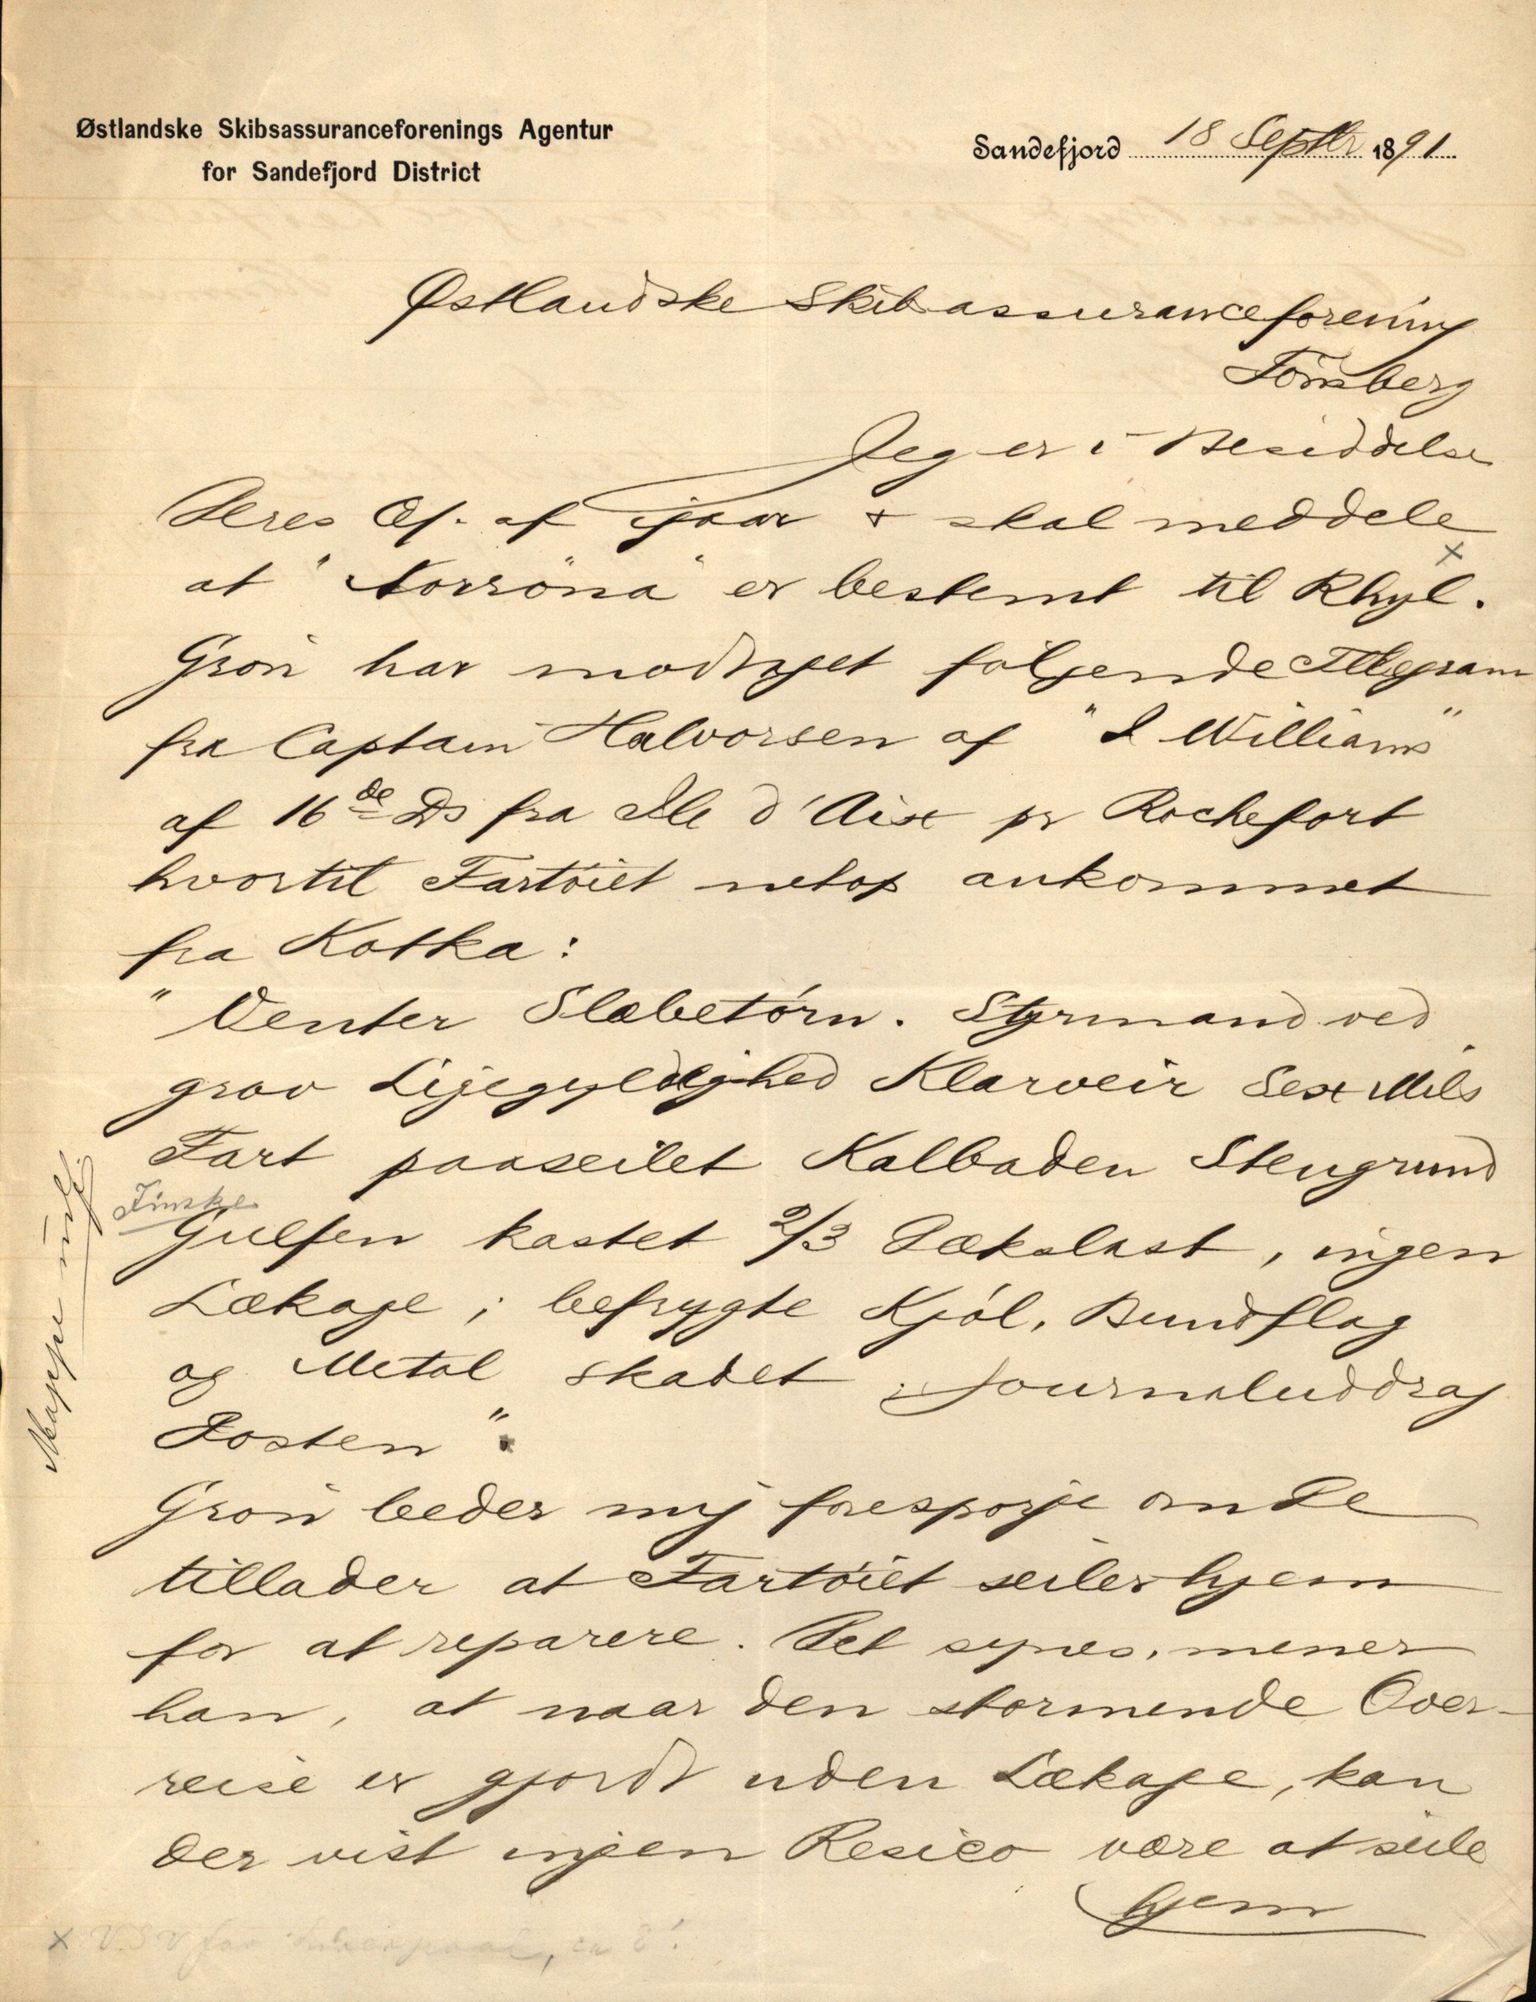 Østlandske Skibsassuranceforenings Agentur
for Sandefjord District
Sandefjord 18 Septbr 1891
Østlandske Skibsassuranceforening
Tönsberg
Jeg er i Besiddelse
Deres Æf. af igaar & skal meddele
at "Norröna" er bestemt til Rhyl. x
Grøn har modtaget følgende Telegram
fra Captain Halvorsen af "J Williams"
af 16de Ds fra Ile d'Aix pr Rochefort
hvortil Fartøiet netop ankommet
fra Kotka:
"Venter Slæbetørn. Styrmand ved
grov Ligegyldighed Klarveir Sex Mils
Fart paaseilet Kalbaden Stengrund
Finske
Gulfen kastet 2/3 Dækslast, ingen
Lækage; befrygte Kjøl, Bundflag
og Metal skadet. Journaluddrag
Posten".
Grøn beder mig forespørge om De
tillader at Fartøiet seiler hjem
for at reparere. Det synes, mener
han, at naar den stormende Over-
reise er gjordt uden Lækage, kan
der vist ingen Resico være at seile
hjem
Mappe
x V.S.V for Liverpool, ca